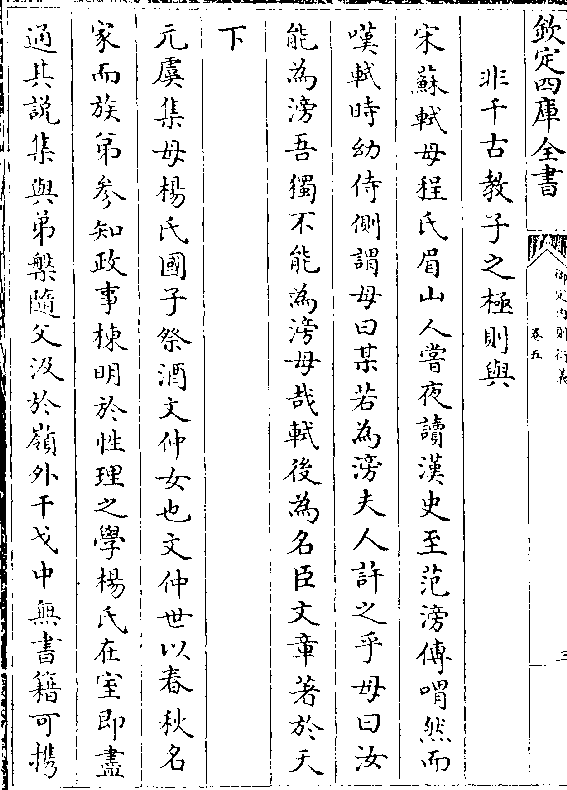 欽定四庫全書
御定內則衍義
卷五
三
非千古教子之極則與
宋蘇軾母程氏眉山人嘗夜讀漢史至范滂傳喟然而
嘆軾時幼侍側謂母曰某若為滂夫人許之乎母曰汝
能為滂吾獨不能為滂母哉軾後為名臣文章著於天
下
元虞集母楊氏國子祭酒文仲女也文仲世以春秋名
家而族弟參知政事棟明於性理之學楊氏在室即盡
通其說集與弟槃隨父汲於嶺外干戈中無書籍可攜